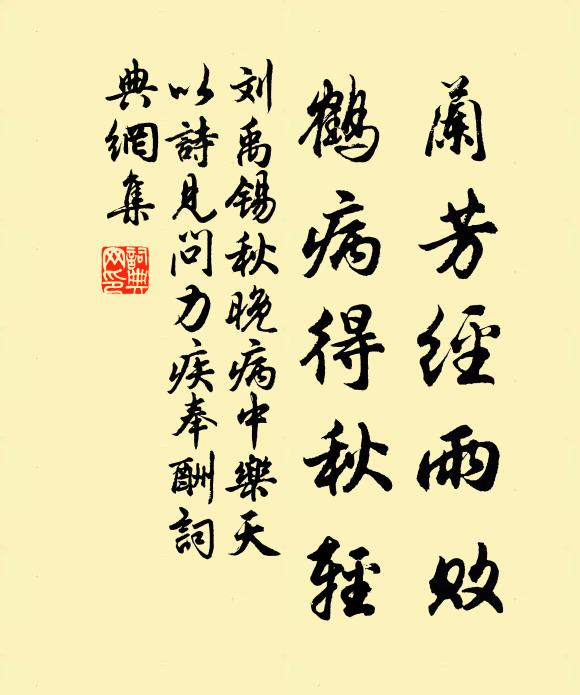 蘭芳經雨敗
鶴病得秋輕
刘禹锡秋晚病中樂天
以詩見問力疾奉酬詞
典網集
詞典
网印